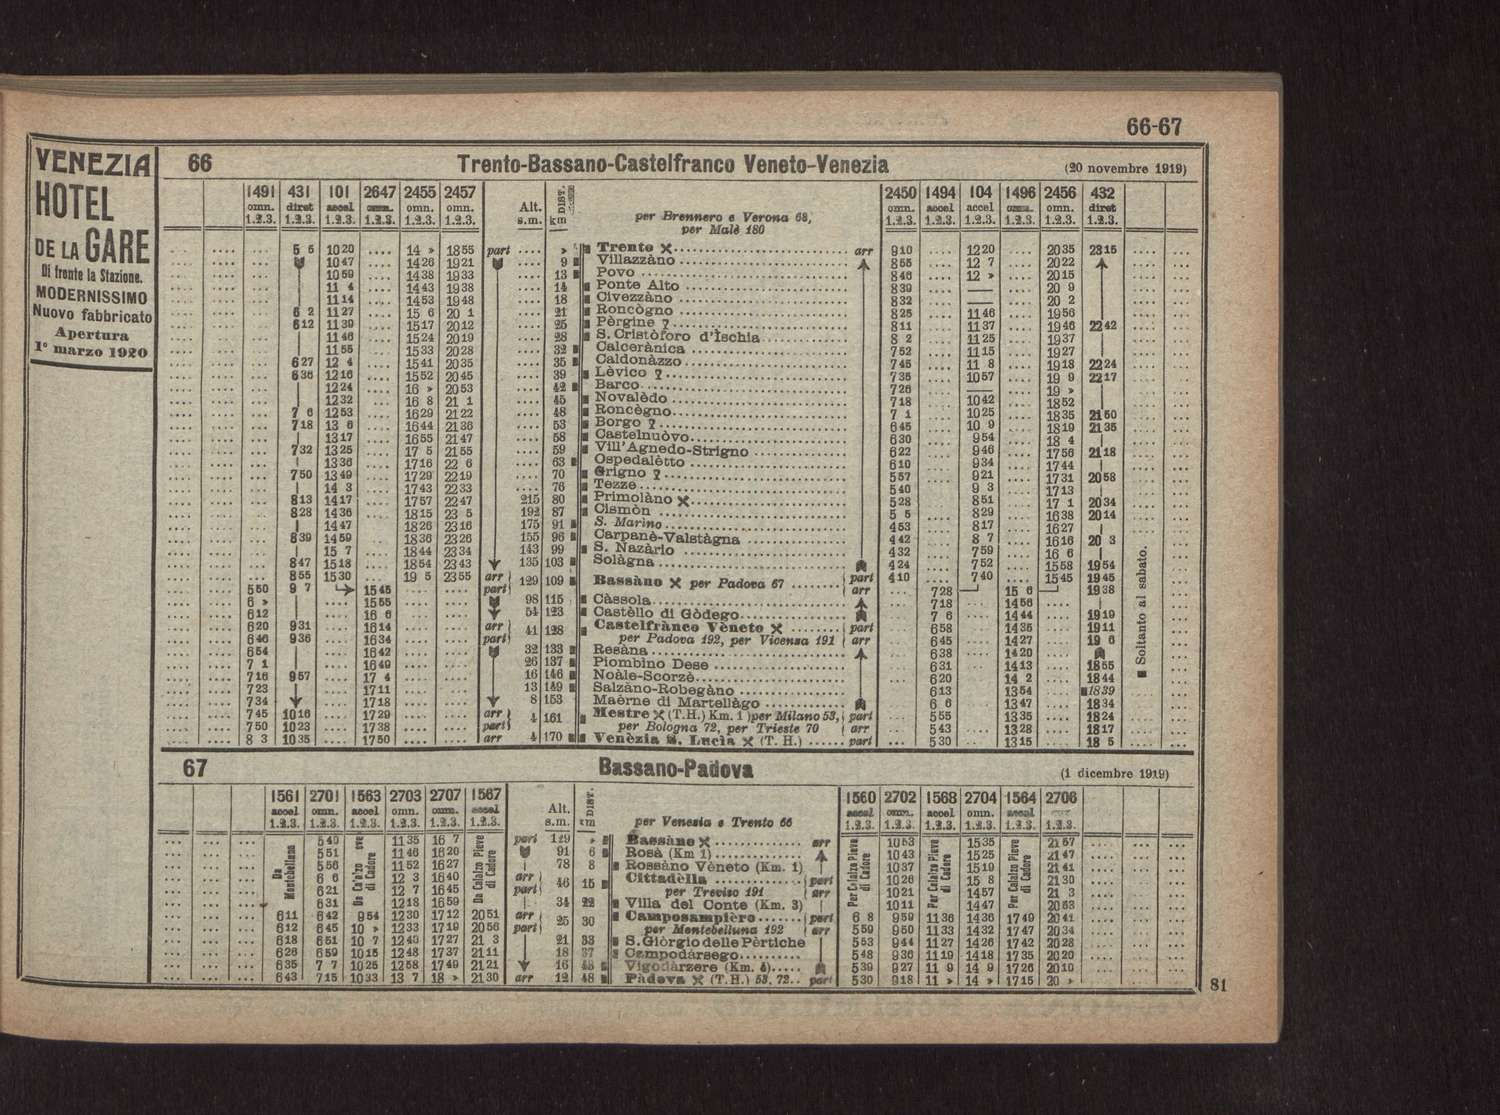 66-67
VENEZIA
HOTEL
DE LA GARE
Di fronte la Stazione.
MODERNISSIMO
Nuovo fabbricato
Apertura
1° marzo 1920
66 Trento-Bassano-Castelfranco Veneto-Venezia (20 novembre 1919)
1491 431 101 2647 2455 2457 Alt. s.m. DIST. km per Brennero e Verona 68, per Malè 180 2450 1494 104 1496 2456 432
omn. diret accel omn. omn. omn. omn. accel accel omn. omn. diret
1.2.3. 1.2.3. 1.2.3. 1.2.3. 1.2.3. 1.2.3. 1.2.3. 1.2.3. 1.2.3. 1.2.3. 1.2.3. 1.2.3.
5 5 10 20 14 » 18 55 part » Trento arr 9 10 12 20 20 35 23 15
10 47 14 26 19 21 9 Villazzàno 8 55 12 7 20 22
10 59 14 38 19 33 13 Povo 8 46 12 » 20 15
11 4 14 43 19 38 14 Ponte Alto 8 39 — 20 9
11 14 14 53 19 48 18 Civezzàno 8 32 — 20 2
6 2 11 27 15 6 20 1 21 Roncògno 8 25 11 46 19 56
6 12 11 39 15 17 20 12 25 Pèrgine 8 11 11 37 19 46 22 42
11 46 15 24 20 19 28 S. Cristòforo d'Ischia 8 2 11 25 19 37
11 55 15 33 20 28 32 Calcerànica 7 52 11 15 19 27
6 27 12 4 15 41 20 35 35 Caldonàzzo 7 45 11 8 19 18 22 24
6 36 12 16 15 52 20 45 39 Lèvico 7 36 10 57 19 9 22 17
12 24 16 » 20 53 42 Barco 7 26 — 19 »
12 32 16 8 21 1 45 Novalèdo 7 18 10 42 18 52
7 6 12 53 16 29 21 22 48 Roncègno 7 1 10 25 18 35 21 50
7 18 13 6 16 44 21 36 53 Borgo 6 45 10 9 18 19 21 35
13 17 16 55 21 47 58 Castelnuòvo 6 30 9 54 18 4
7 32 13 25 17 5 21 55 59 Vill'Agnedo-Strigno 6 22 9 46 17 56 21 18
13 36 17 16 22 6 63 Ospedalètto 6 10 9 34 17 44
7 50 13 49 17 29 22 19 70 Grigno 5 57 9 21 17 31 20 58
14 3 17 43 22 33 76 Tezze 5 40 9 3 17 13
8 13 14 17 17 57 22 47 215 80 Primolàno 5 28 8 51 17 1 20 34
8 28 14 36 18 15 23 5 192 87 Cismòn 5 5 8 29 16 38 20 14
14 47 18 26 23 16 175 91 S. Marino 4 53 8 17 16 27
8 39 14 59 18 36 23 26 155 96 Carpanè-Valstàgna 4 42 8 7 16 16 20 3
15 7 18 44 23 34 143 99 S. Nazàrio 4 32 7 59 16 6
8 47 15 18 18 54 23 43 135 103 Solàgna 4 24 7 52 15 58 19 54
8 55 15 30 19 5 23 55 arr 129 109 Bassàno per Padova 67 part 4 10 7 40 15 45 19 45
5 50 9 7 15 45 part arr 7 28 15 6 19 38
6 » 15 55 98 115 Càssola 7 18 14 56
6 12 16 6 54 123 Castèllo di Gòdego 7 6 14 44 19 19
6 20 9 31 16 14 arr 41 128 Castelfrànco Vèneto part 6 58 14 35 19 11
6 46 9 36 16 34 part per Padova 192, per Vicenza 191 arr 6 45 14 27 19 6
6 54 16 42 32 133 Resàna 6 38 14 20
7 1 16 49 26 137 Piombìno Dese 6 31 14 13 18 55
7 16 9 57 17 4 16 146 Noàle-Scorzè 6 20 14 2 18 44
7 23 17 11 13 149 Salzàno-Robegàno 6 13 13 54 ■ 18 39
7 34 17 18 8 153 Maèrne di Martellàgo 6 6 13 47 18 34
7 45 10 16 17 29 arr 4 161 Mestre (T.H.) Km. 1 per Milano 53, part 5 55 13 35 18 24
7 50 10 23 17 38 part per Bologna 72, per Trieste 70 arr 5 43 13 28 18 17
8 3 10 35 17 50 arr 4 170 Venèzia S. Lucia (T. H.) part 5 30 13 15 18 5
■ Soltanto al sabato.
67 Bassano-Padova (1 dicembre 1919)
1561 2701 1563 2703 2707 1567 Alt. s.m. DIST. km per Venezia e Trento 66 1560 2702 1568 2704 1564 2706
accel omn. accel omn. omn. accel accel omn. accel omn. accel
1.2.3. 1.2.3. 1.2.3. 1.2.3. 1.2.3. 1.2.3. 1.2.3. 1.2.3. 1.2.3. 1.2.3. 1.2.3. 1.2.3.
Da Montebelluna
Da Calalzo Pieve di Cadore
Da Calalzo Pieve di Cadore
Per Calalzo Pieve di Cadore
Per Calalzo Pieve di Cadore
Per Calalzo Pieve di Cadore
5 40 11 35 16 7 part 129 » Bassàno arr 10 53 15 35 21 57
5 51 11 46 16 20 91 6 Rosà (Km 1) 10 43 15 25 21 47
5 56 11 52 16 27 78 8 Rossàno Vèneto (Km. 1) 10 37 15 19 21 41
6 6 12 3 16 40 arr 46 15 Cittadèlla part 10 26 15 8 21 30
6 21 12 7 16 45 part per Treviso 191 arr 10 21 14 57 21 3
6 31 12 18 16 59 34 22 Villa del Conte (Km. 3) 10 11 14 47 20 53
6 11 6 42 9 54 12 30 17 12 20 51 arr 25 30 Camposampièro part 6 8 9 59 11 36 14 36 17 49 20 41
6 12 6 45 10 » 12 33 17 19 20 56 part per Montebelluna 192 arr 5 59 9 50 11 33 14 32 17 47 20 34
6 18 6 51 10 7 12 40 17 27 21 3 21 33 S. Giòrgio delle Pèrtiche 5 53 9 44 11 27 14 26 17 42 20 28
6 26 6 59 10 15 12 48 17 37 21 11 18 37 Campodàrsego 5 48 9 36 11 19 14 18 17 35 20 20
6 35 7 7 10 25 12 58 17 49 21 21 16 43 Vigodàrzere (Km. 4) 5 39 9 27 11 9 14 9 17 26 20 10
6 43 7 15 10 33 13 7 18 » 21 30 arr 12 48 Pàdova (T.H.) 53, 72 part 5 30 9 18 11 » 14 » 17 15 20 »
81